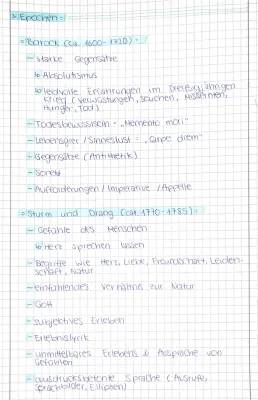 Epochen:
Barock (ca. 1600-1720):
- starke Gegensätze
↳ Absolutismus
- leidvolle Erfahrungen im Dreißigjährigen
Krieg (Verwüstungen, Seuchen, Missernten,
Hunger, Tod)
- Todesbewusstsein - „Memento mori"
- Lebensgier / Sinneslust - „Carpe diem"
- Gegensätze (Antithetik)
- Sonett
- Aufforderungen / Imperative / Appelle
Sturm und Drang (ca. 1770-1785):
- Gefühle des Menschen
↳ Herz sprechen lassen
- Begriffe wie Herz, Liebe, Freundschaft, Leiden-
schaft, Natur
- einfühlendes Verhältnis zur Natur
- Gott
- subjektives Erleben
- Erlebnislyrik
- unmittelbares Erleben & Aussprache von
Gefühlen
- ausdrucksbetonte Sprache (Ausrufe,
Sprachbilder, Ellipsen)